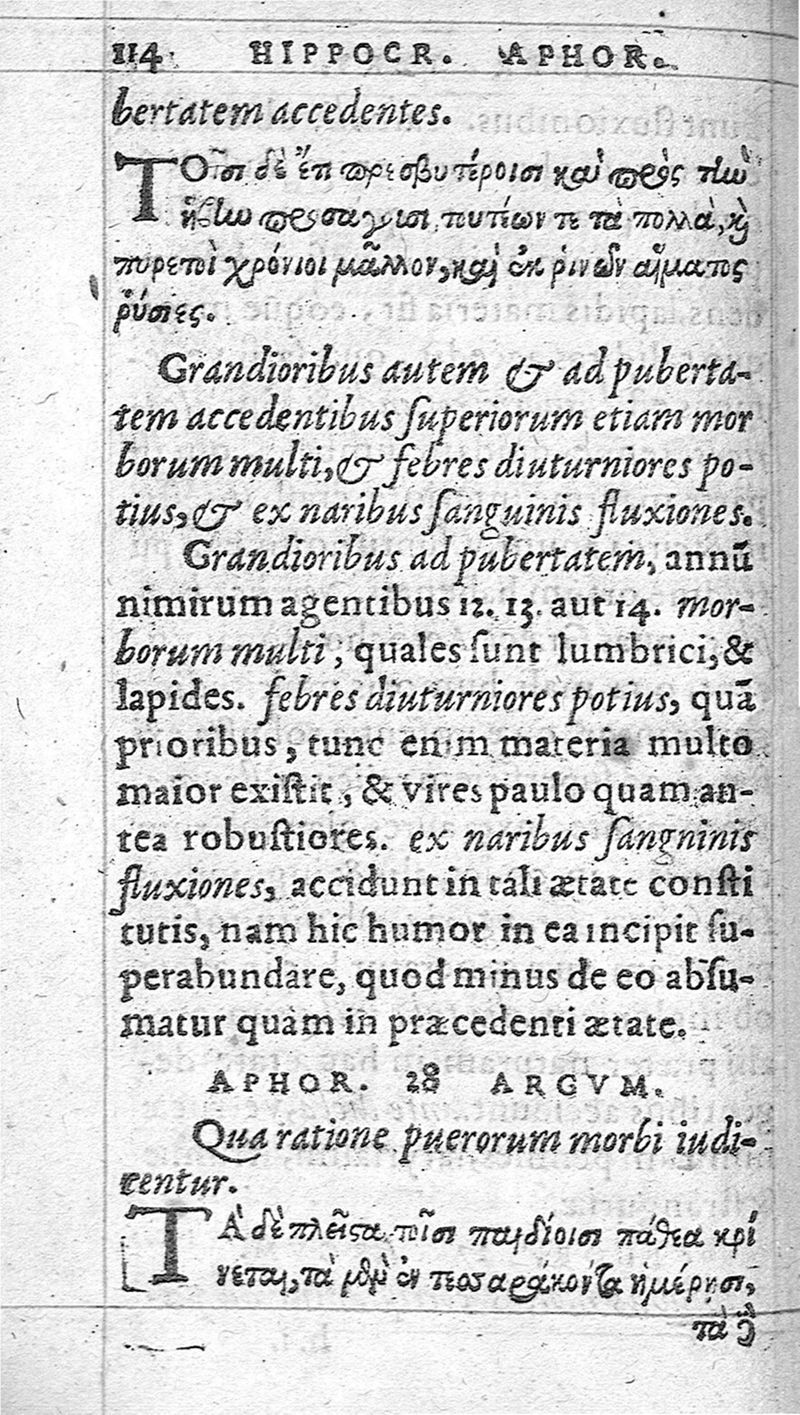 114 HIPPOCR. APHOR.
bertatem accedentes.
ΤΟῖσι δὲ ἔτι πρεσβυτέροισι καὶ πρὸς τὴν
ἥβην προσάγουσι, τουτέων τε τὰ πολλὰ, καὶ
πυρετοὶ χρόνιοι μᾶλλον, καὶ ἐκ ῥινῶν αἵματος
ῥύσιες.
Grandioribus autem & ad puberta-
tem accedentibus ſuperiorum etiam mor
borum multi, & febres diuturniores po-
tius, & ex naribus ſanguinis fluxiones.
Grandioribus ad pubertatem, annũ
nimirum agentibus 12. 13. aut 14. mor-
borum multi, quales ſunt lumbrici, &
lapides. febres diuturniores potius, quã
prioribus, tunc enim materia multo
maior exiſtit, & vires paulo quam an-
tea robuſtiores. ex naribus ſangninis
fluxiones, accidunt in tali ætate conſti
tutis, nam hic humor in ea incipit ſu-
perabundare, quod minus de eo abſu-
matur quam in præcedenti ætate.
APHOR. 28 ARGVM.
Qua ratione puerorum morbi iudi-
centur.
ΤᾺ δὲ πλεῖστα τοῖσι παιδίοισι πάθεα κρί
νεται, τὰ μὲν ἐν τεσσαράκοντα ἡμέρῃσι,
τὰ δὲ